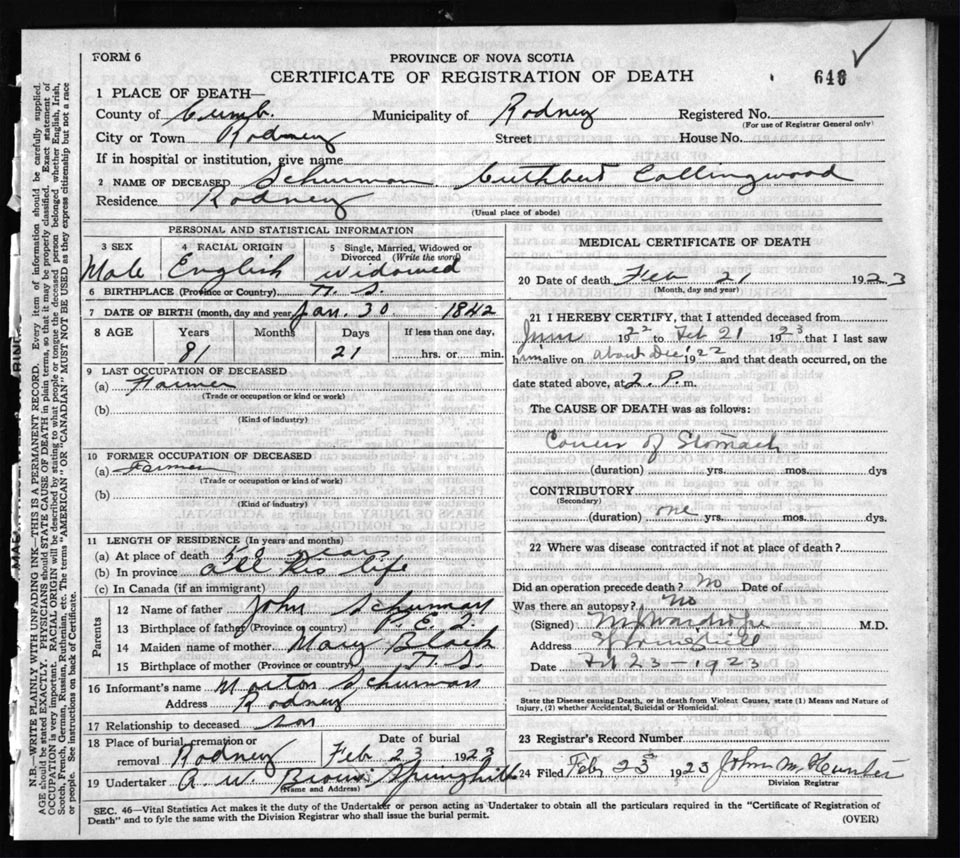 FORM 6
PROVINCE OF NOVA SCOTIA
CERTIFICATE OF REGISTRATION OF DEATH
1 PLACE OF DEATH—
County of Cumb. Municipality of Rodney Registered No.
(For use of Registrar General only)
City or Town Rodney Street House No.
If in hospital or institution, give name
2 NAME OF DECEASED Schurman Cuthbert Collingwood
Residence Rodney
(Usual place of abode)
PERSONAL AND STATISTICAL INFORMATION
3 SEX 4 RACIAL ORIGIN 5 Single, Married, Widowed or
Divorced (Write the word)
Male English widowed
6 BIRTHPLACE (Province or Country) N. S.
7 DATE OF BIRTH (month, day and year) Jan. 30 1842
8 AGE Years Months Days If less than one day,
81 21 hrs. or min.
9 LAST OCCUPATION OF DECEASED
(a) Farmer
(Trade or occupation or kind or work)
(b)
(Kind of industry)
10 FORMER OCCUPATION OF DECEASED
(a) Farmer
(Trade or occupation or kind of work)
(b)
(Kind of industry)
11 LENGTH OF RESIDENCE (In years and months)
(a) At place of death 50 years
(b) In province all his life
(c) In Canada (if an immigrant)
Parents
12 Name of father John Schurman
13 Birthplace of father (Province or country) P. E. I.
14 Maiden name of mother Mary Black
15 Birthplace of mother (Province or country) N. S.
16 Informant's name Morton Schurman
Address Rodney
17 Relationship to deceased son
18 Place of burial, cremation or Date of burial
removal Rodney Feb 23 1923
19 Undertaker A. W. Brown Springhill
(Name and Address)
MEDICAL CERTIFICATE OF DEATH
20 Date of death Feb 21 1923
(Month, day and year)
21 I HEREBY CERTIFY, that I attended deceased from
1922 to Feb 21 1923 that I last saw
him alive on about Dec 1922 and that death occurred, on the
date stated above, at 2. P. m.
The CAUSE OF DEATH was as follows:
Cancer of Stomach
(duration) yrs. mos. dys
CONTRIBUTORY
(Secondary)
(duration) one yrs. mos. dys.
22 Where was disease contracted if not at place of death?
Did an operation precede death? No Date of
Was there an autopsy? No
(Signed) M.D.
Address Springhill
Date Feb 23 - 1923
State the Disease causing Death, or in death from Violent Causes, state (1) Means and Nature of
Injury, (2) whether Accidental, Suicidal or Homicidal.
23 Registrar's Record Number
24 Filed Feb 23 1923 John M Hunter
Division Registrar
SEC. 46—Vital Statistics Act makes it the duty of the Undertaker or person acting as Undertaker to obtain all the particulars required in the "Certificate of Registration of
Death" and to fyle the same with the Division Registrar who shall issue the burial permit. (OVER)
N.B.—WRITE PLAINLY WITH UNFADING INK—THIS IS A PERMANENT RECORD. Every item of information should be carefully supplied.
AGE should be stated EXACTLY. PHYSICIANS should STATE CAUSE OF DEATH in plain terms, so that it may be properly classified. Exact statement of
OCCUPATION is very important. RACIAL ORIGIN will be described by stating to what people or tongue the deceased person belonged whether English, Irish,
Scotch, French, German, Russian, Ruthenian, etc. The terms "AMERICAN" OR "CANADIAN" MUST NOT BE USED as they express citizenship but not a race
or people. See instructions on back of Certificate.